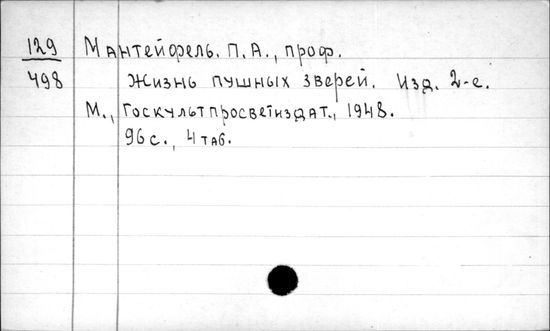 129 Мантейфель. П.А., проф.
498 Жизнь пушных зверей. Изд. 2-е.
М., Госкультпросветиздат., 1948.
96 с., 4 таб.